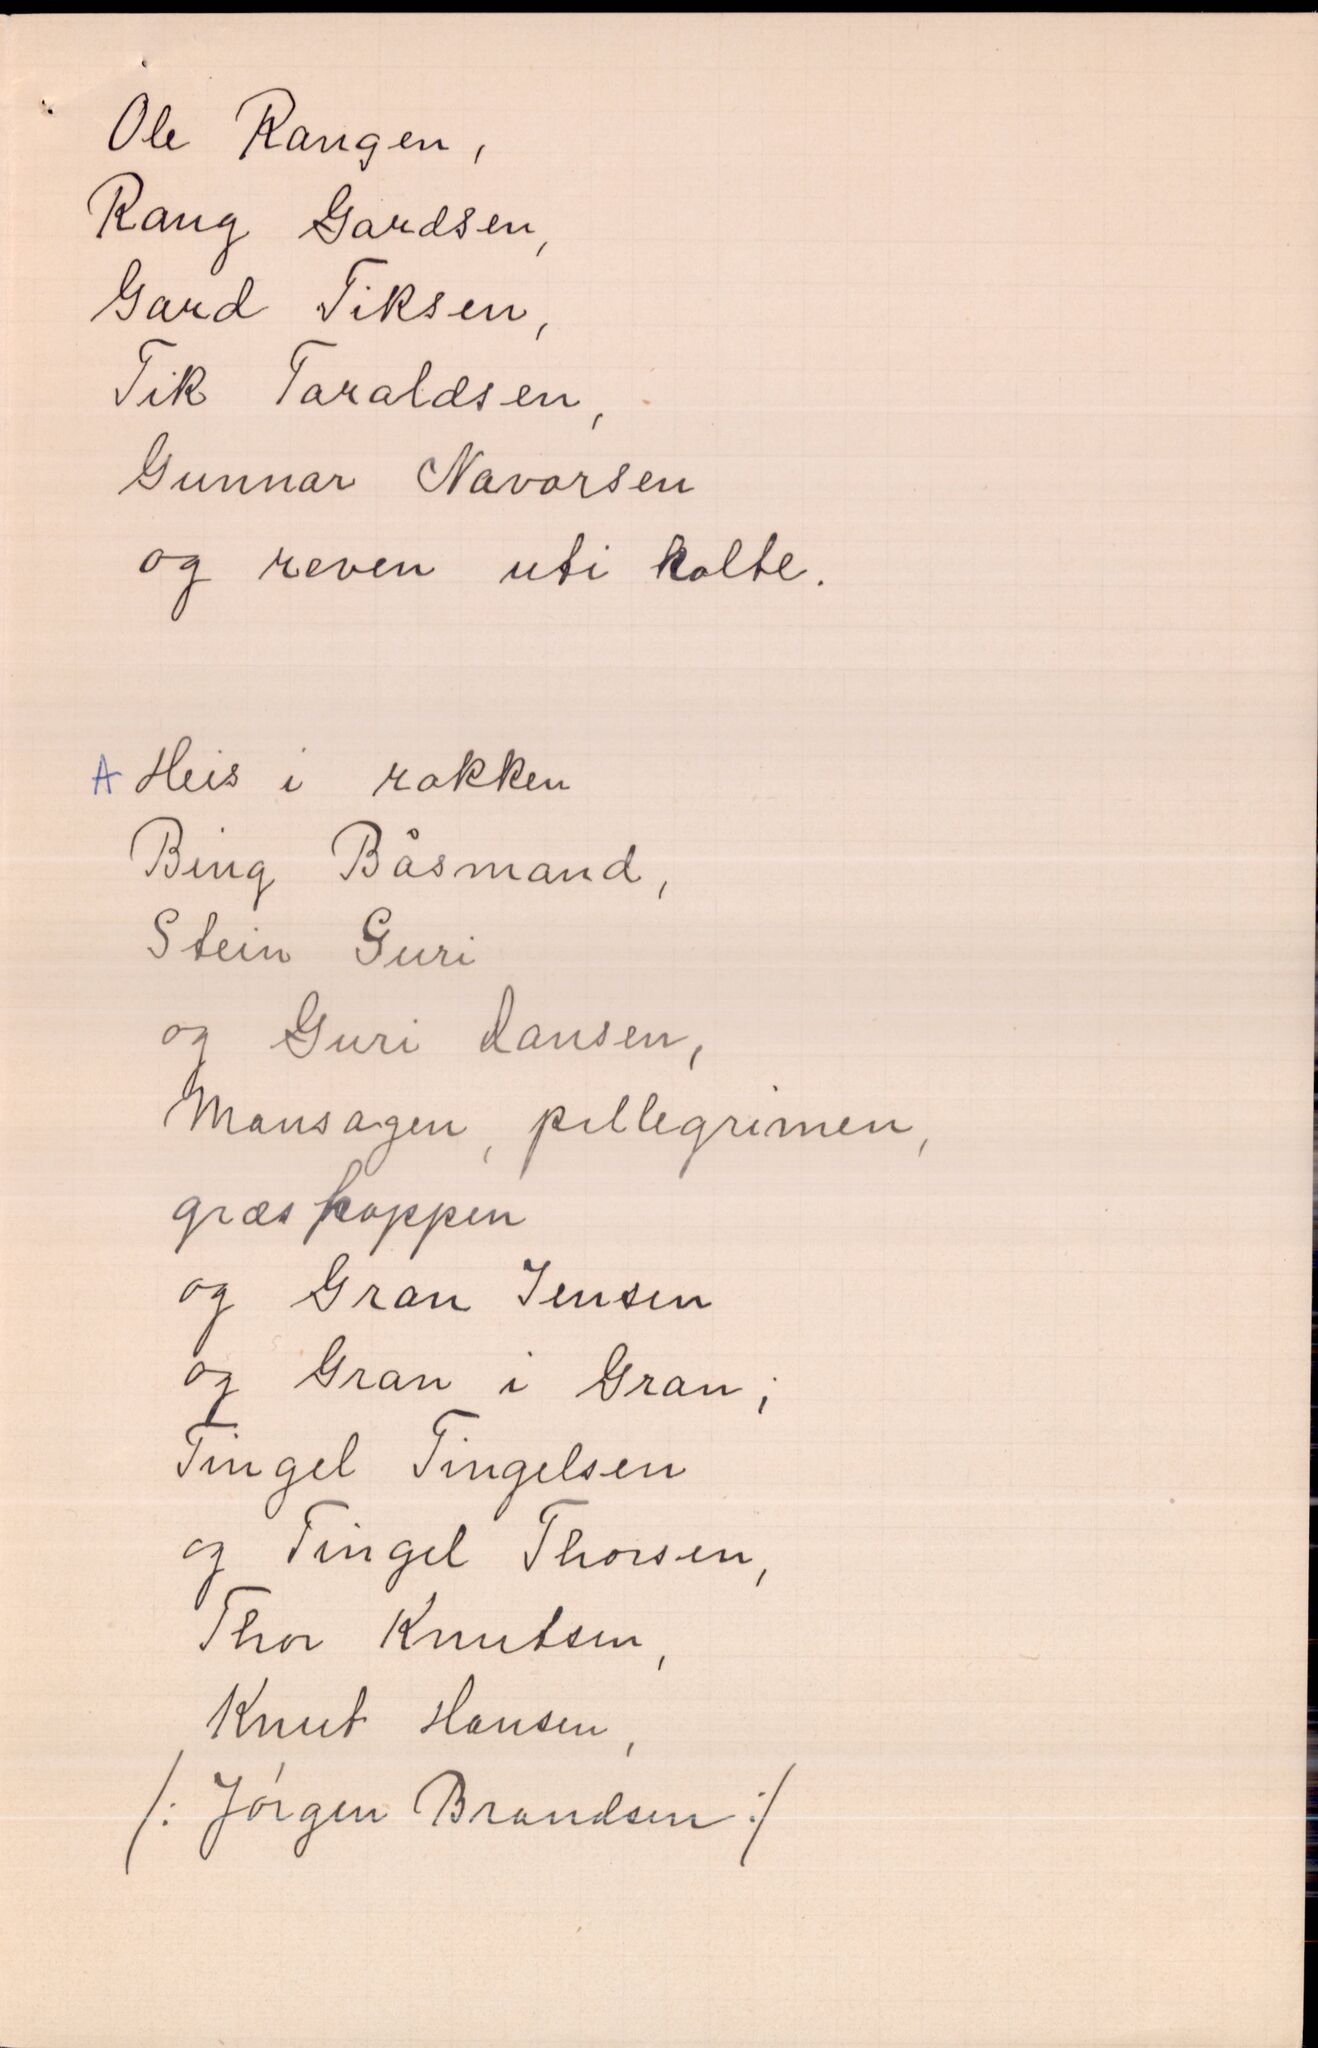 Ole Rangen,
Rang Gardsen,
Gard Tiksen,
Tik Taraldsen,
Gunnar Navarsen
og reven uti holte.
A Heis i rokken
Bing Båsmand,
Stein Guri
og Guri Dansen,
Mansagen, pillegrimen,
græshoppen
og Gran Jensen
og Gran i Gran;
Tingel Tingelsen
og Tingel Thorsen,
Thor Knutsen,
Knut Hansen,
/: Jørgen Brandsen :/